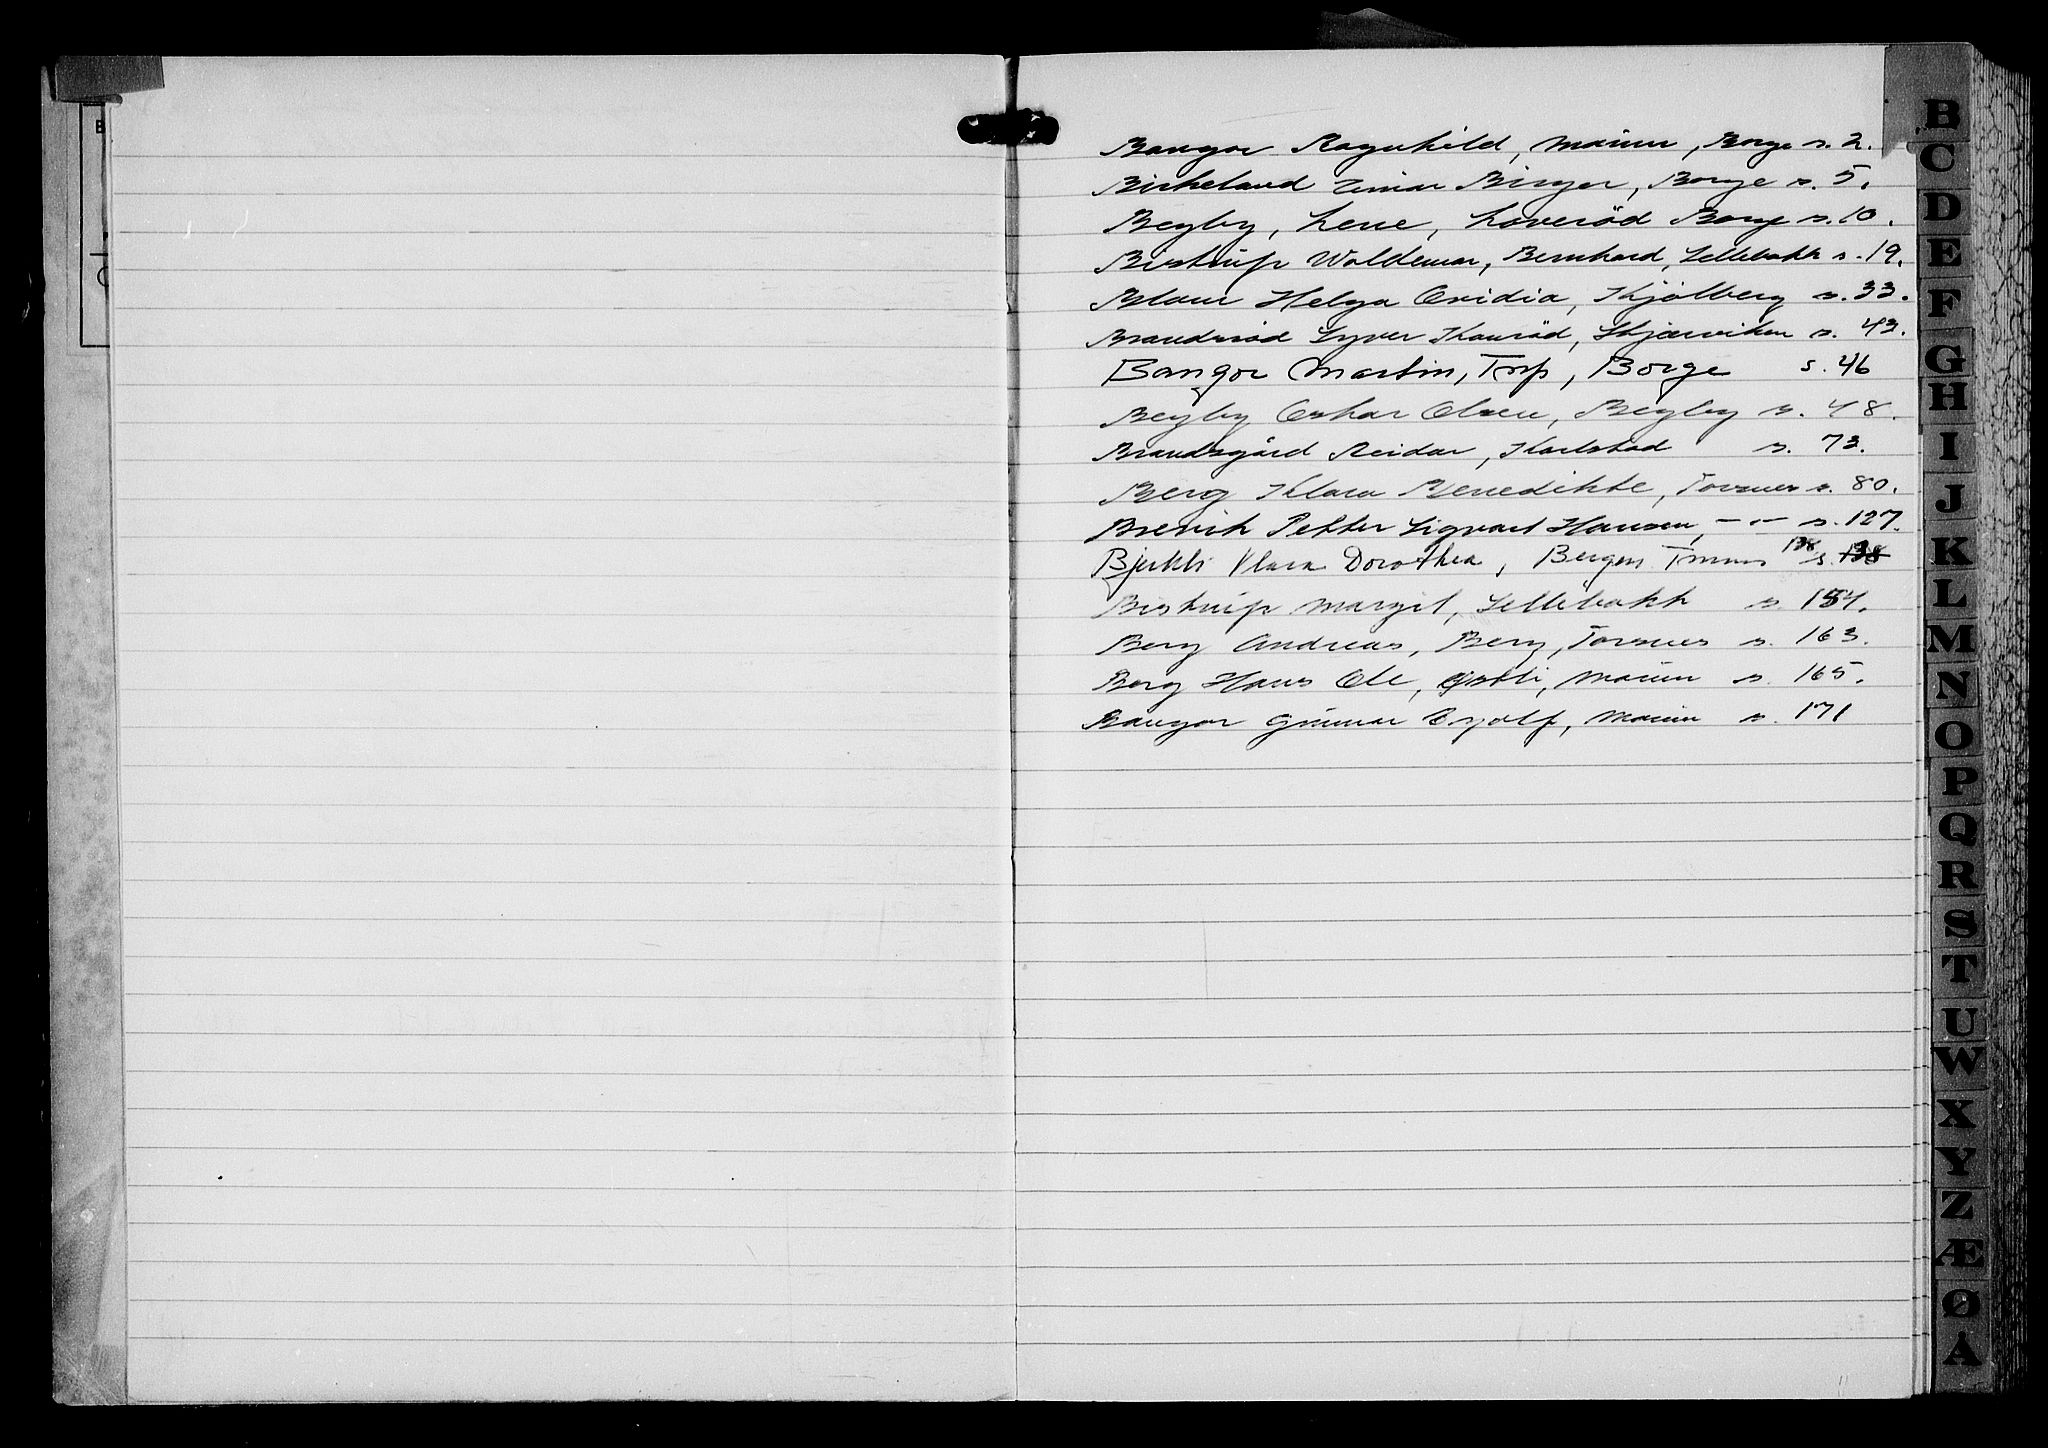 Bangor Ragnhild, Moum, Borge s. 2.
Birkeland Einar Birger, Borge s. 5.
Begby, Lene, Loverød Borge s. 10.
Bistrup Waldemar, Bernhard, Sellebakk s. 19.
Blom Helga Ovidia, Kjølberg s. 33.
Brandsrød Syver Konrad, Skjærviken s. 43.
Bangor Martin, Torp, Borge s. 46
Begby Oskar Olsen, Begby s. 48.
Brandsgård Reidar, Karlstad s. 73.
Berg Klara Benedikte, Torsnes s. 80.
Brevik Petter Sigvart Hansen, — " — s. 127.
Bjerkli Klara Dorothea, Bergen Torsnes 138 s. 138
Bistrup Margit, Sellebakk s. 154.
Berg Andreas, Berg, Torsnes s. 163.
Borg Hans Ole, Moum s. 165.
Bangor Gunnar Eyolf, Moum s. 171
B
C
D
E
F
G
H
I
J
K
L
M
N
O
P
Q
R
S
T
U
W
X
Y
Z
Æ
Ø
A